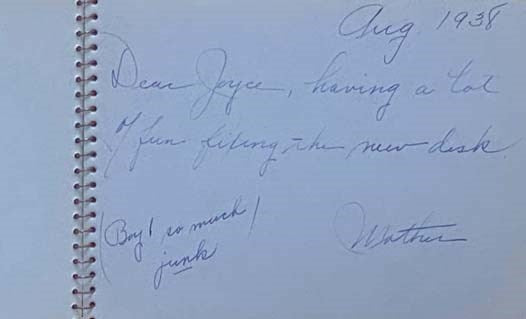 Aug. 1938
Dear Joyce, having a lot
of fun filing the new desk.
(Boy! so much
junk)
Mother